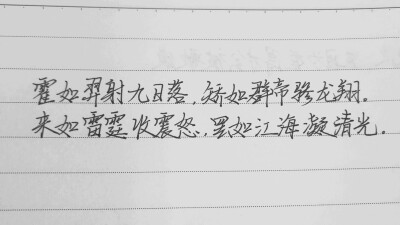 霍如羿射九日落,矫如群帝骖龙翔。
来如雷霆收震怒,罢如江海凝清光。